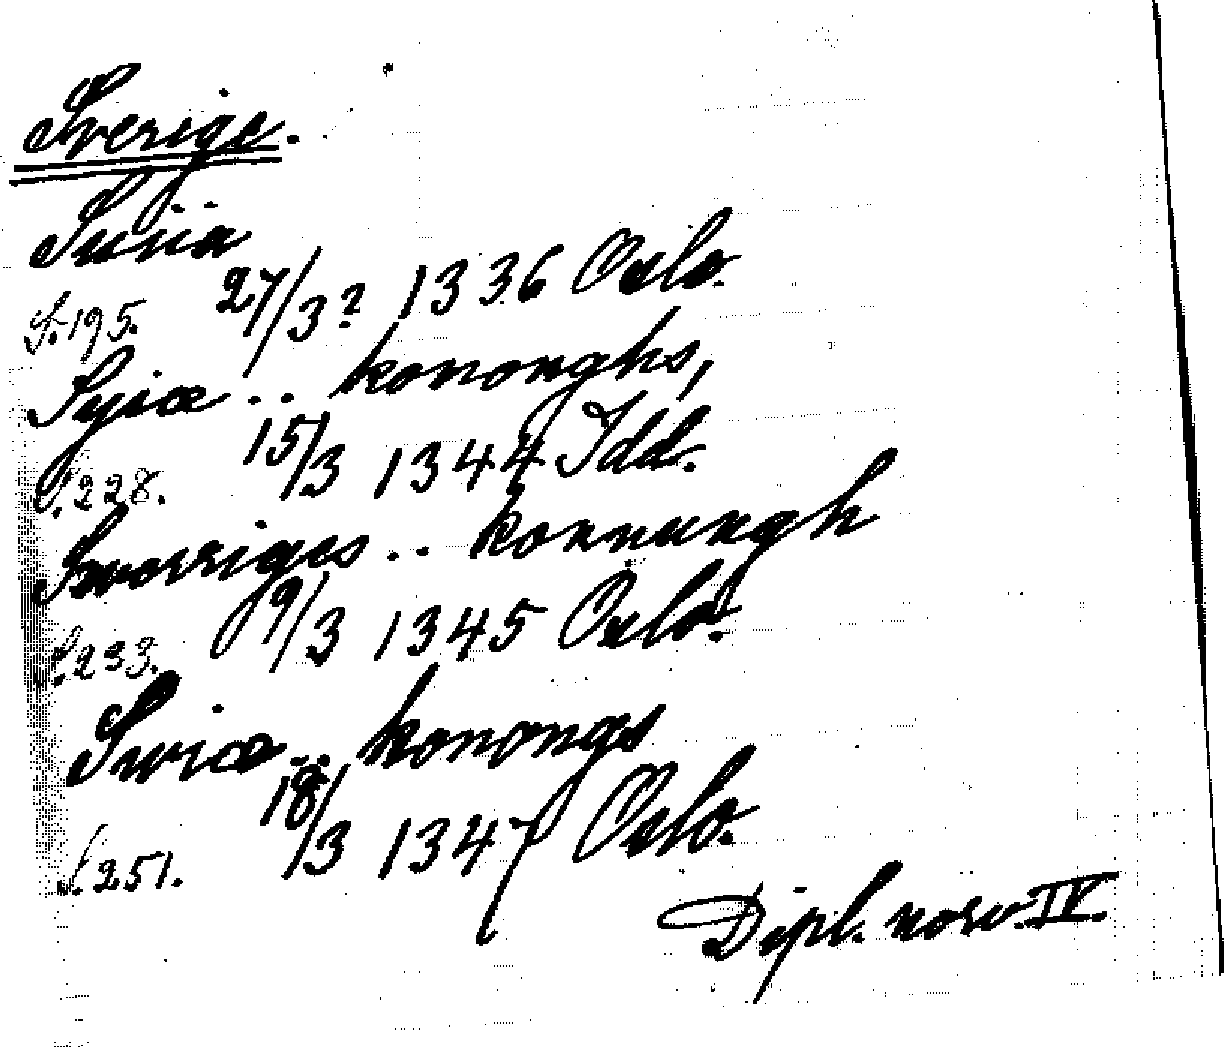 Sverige.
Suiia
S. 195. 27/3? 1336 Oslo.
Syiæ .. kononghs,
S. 228. 15/3 1344 Idd.
Sworriges .. konnungh
S. 233. 9/3 1345 Oslo.
Swiæ .. konongs
S. 251. 18/3 1347 Oslo.
Dipl. norv. IV.